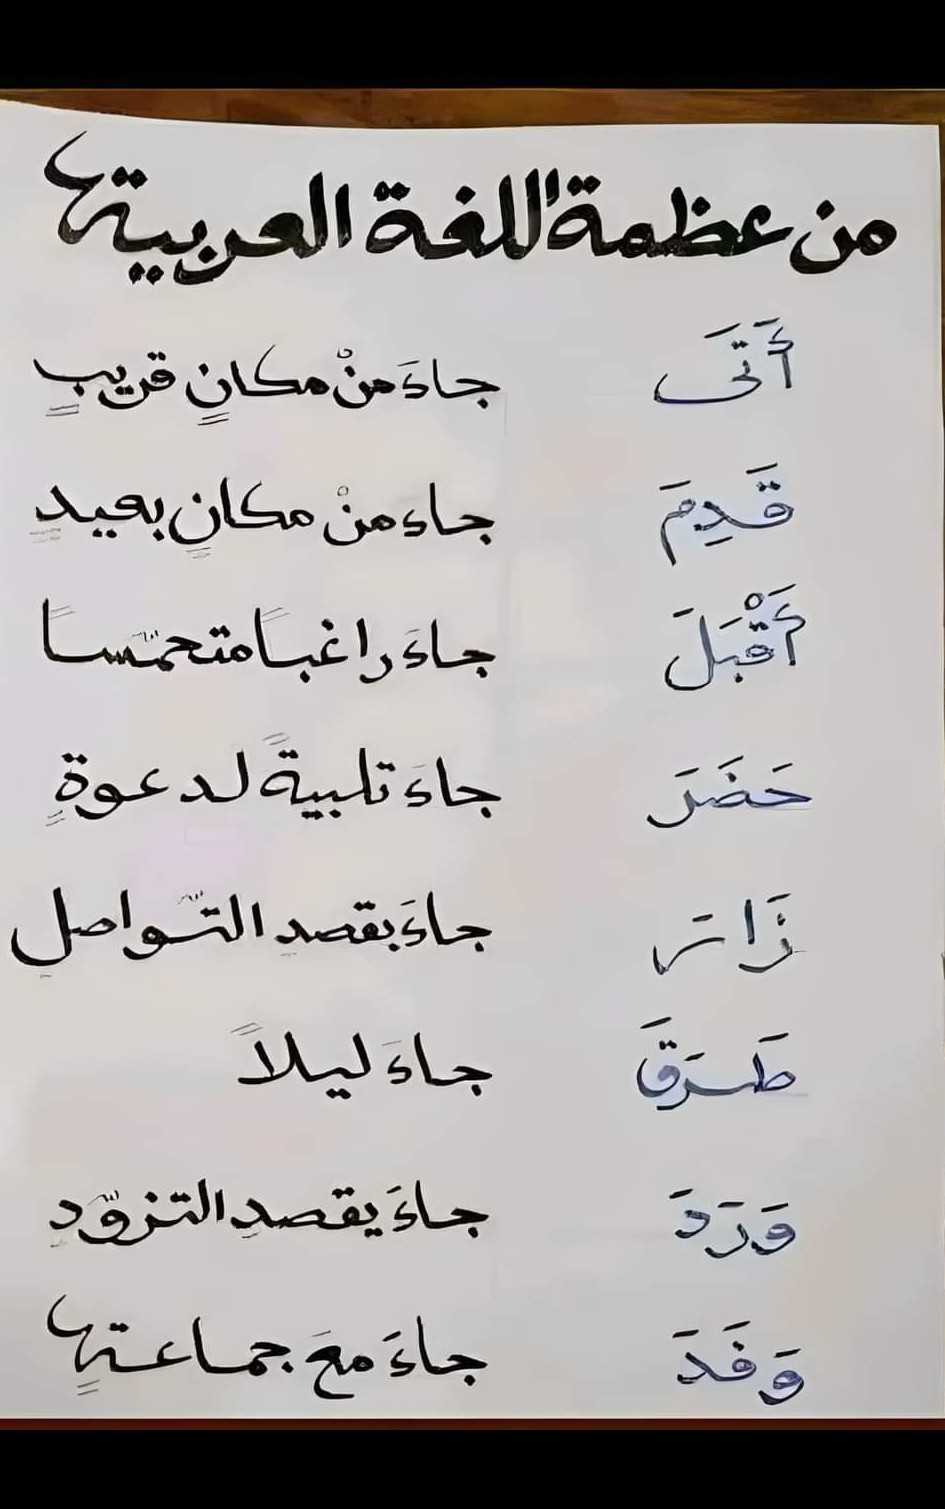 من عظمة اللغة العربية
أَتَى جاءَ منْ مكانٍ قريبٍ
قَدِمَ جاءَ منْ مكانٍ بعيدٍ
أَقْبَلَ جاءَ راغباً متحمّساً
حَضَرَ جاءَ تلبيةً لدعوةٍ
زَارَ جاءَ بقصدِ التّواصلِ
طَرَقَ جاءَ ليلاً
وَرَدَ جاءَ يقصدِ التزوّدِ
وَفَدَ جاءَ معَ جماعةٍ